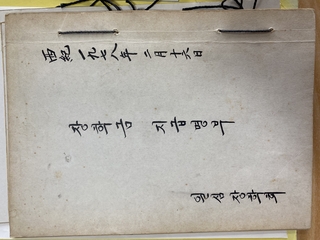 西紀 一九七八年 二月十六日
장학금 지급명부
장학회